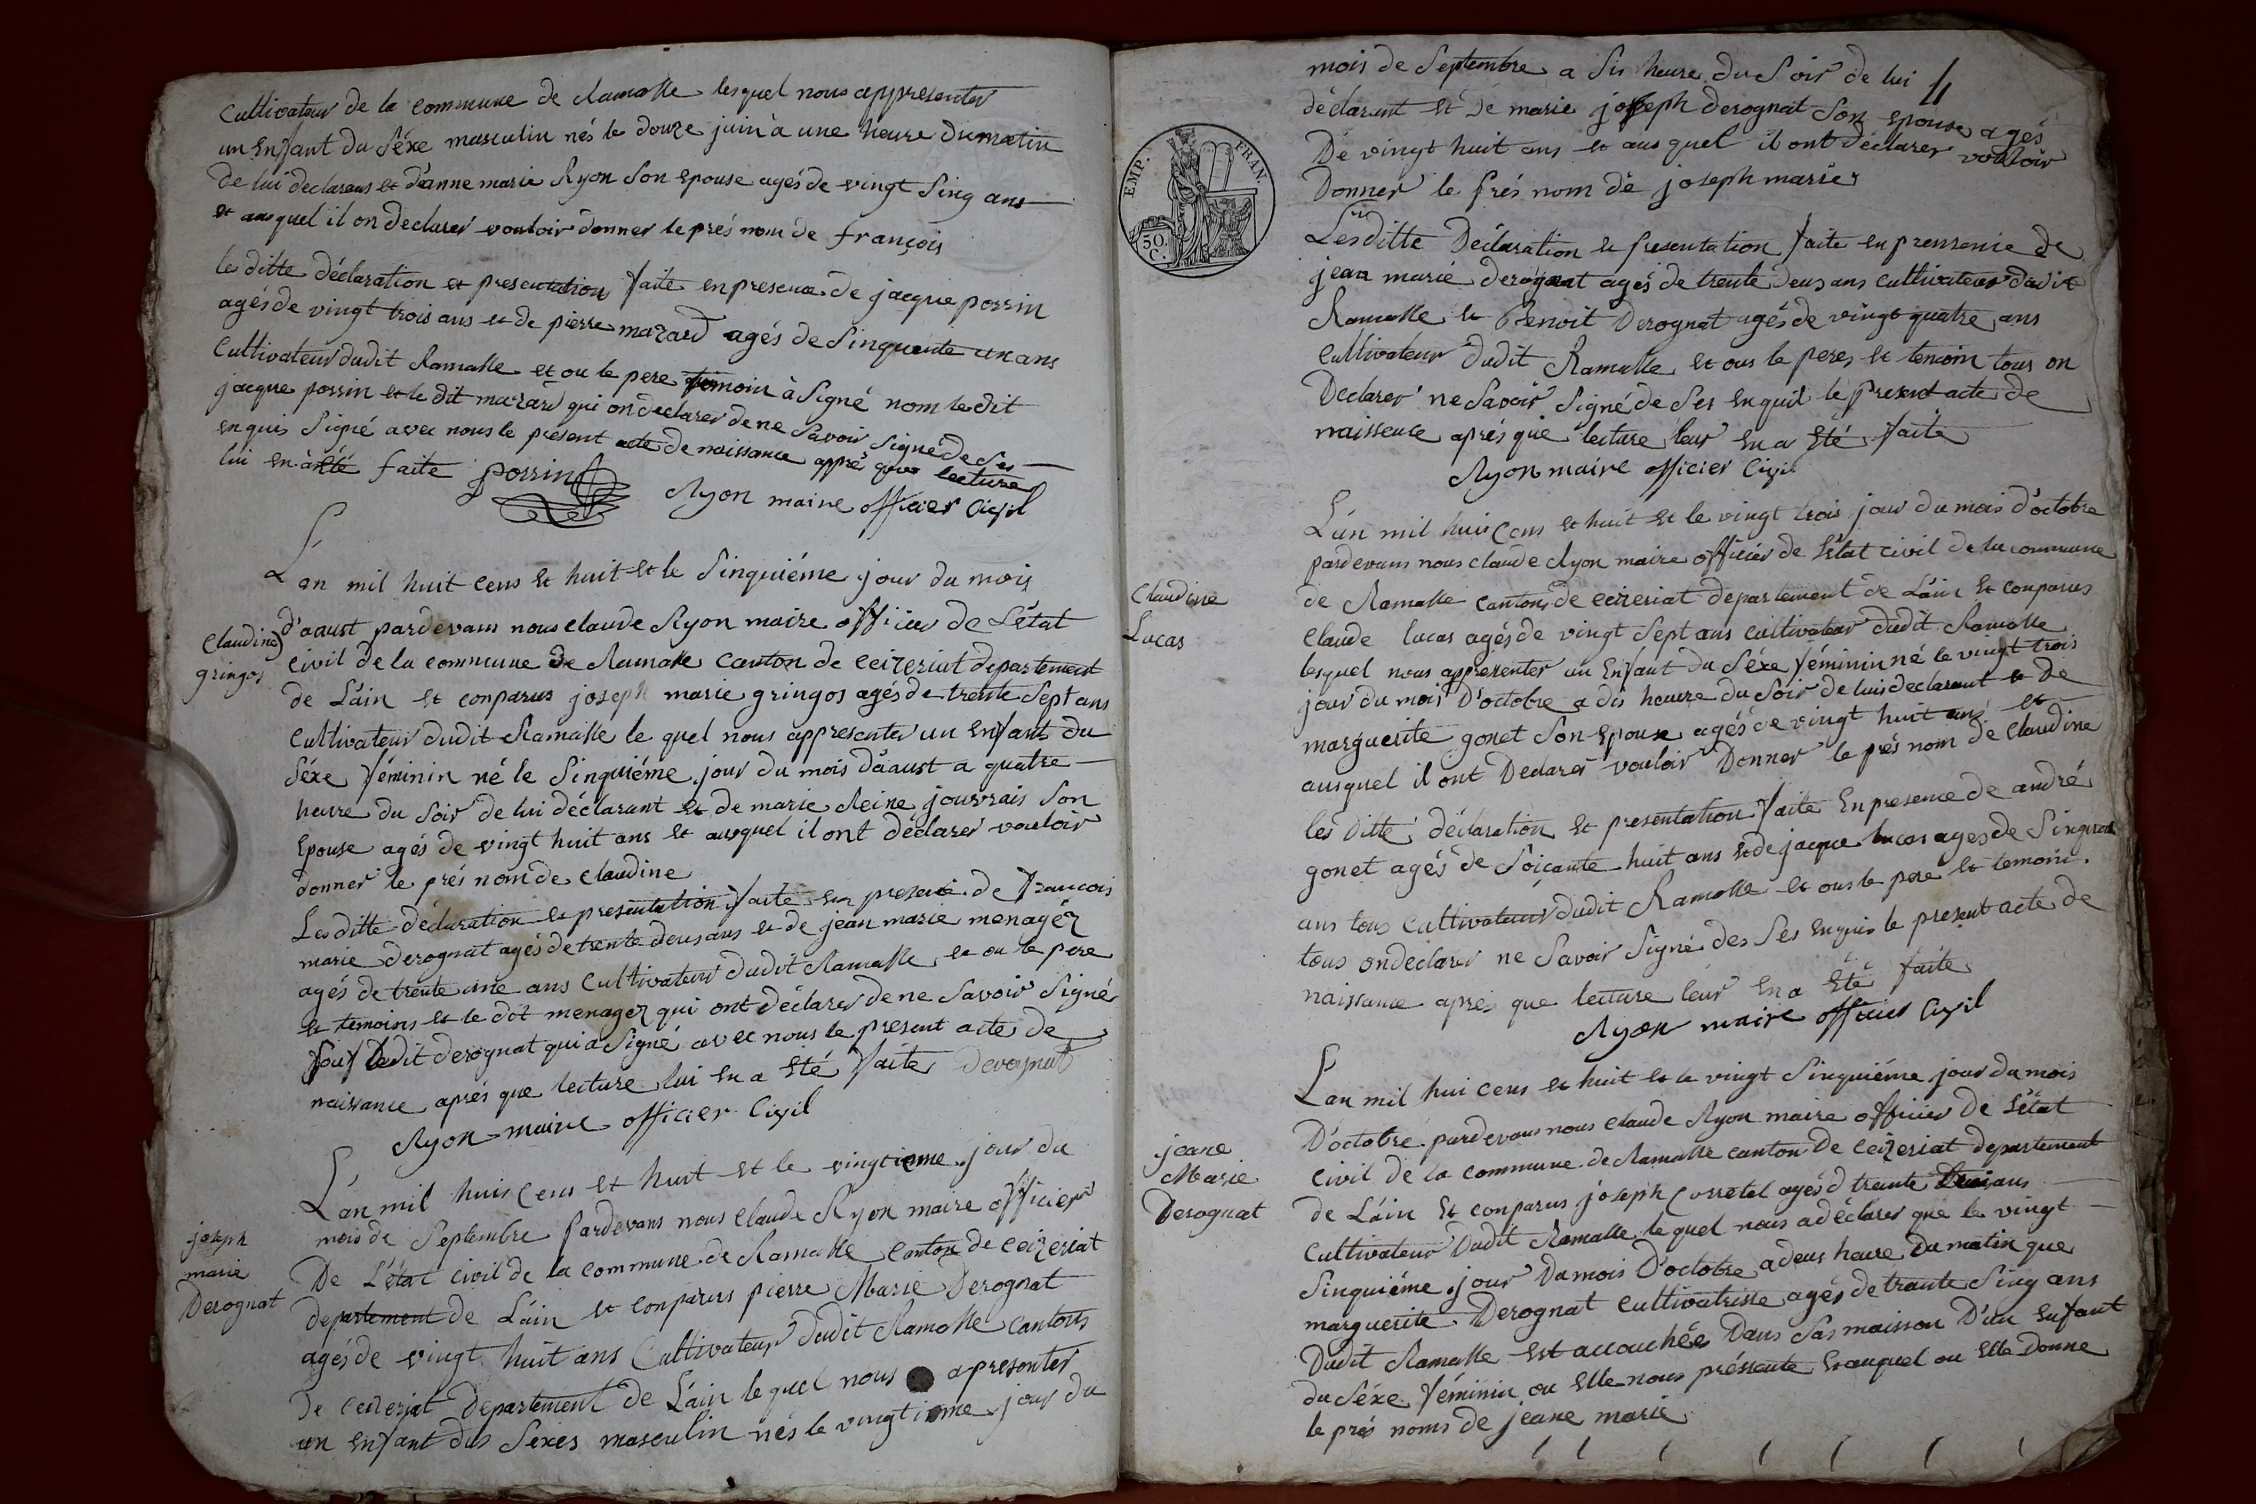 Cultivateur de la commune de Ramasse lesquel nous appresenter
un Enfant du Séxe masculin nés le douze juin à une heure du matin
de lui déclarans et d'anne marie Ryon Son Epouse agés de vingt Sinq ans
et ausquel il on declarer vouloir donner le prés nom de françois
les ditte déclaration et presentation faite en presence de jacque porrin
agés de vingt trois ans et de pierre mazard agés de Sinquante un ans
Cultivateur dudit Ramasse et ou le pere temoin à Signé nom le dit
jacque porrin et le dit mazard qui on declarer de ne Savoir Signé de Ses
enquis Signé avec nous le présent acte de naissance apprés que lecture
lui en à été faite porrin
Ryon maire officier Civil
Lan mil huit cens et huit et le Sinquiéme jour du mois
d'aaust pardevans nous claude Ryon maire officier de L'état
Claudine
gringos
civil de la commune de Ramasse canton de ceizeriat departement
de L'ain et conparus joseph marie gringos agés de trente Sept ans
Cultivateur dudit Ramasse le quel nous appresenter un Enfant du
Séxe féminin né le Sinquiéme jour du mois d'aaust a quatre
heure du Soir de lui déclarant et de marie Reine jouvrais Son
Epouse agés de vingt huit ans et ausquel il ont déclarer vouloir
donner le prés nom de claudine
Les ditte déclaration et presentation faite en presence de francois
marie derognat agés de trente deus ans et de jean marie menagéz
agés de trente une ans Cultivateur dudit Ramasse et ou le pere
et temoins et le dit menagez qui ont déclarer de ne Savoir Signé
Souf ledit derognat qui a Signé avec nous le present acte de
naissance aprés que lecture lui en a été faite derognat
Ryon maire officier Civil
L'an mil huis cens et huit et le vingtieme jour du
mois de Septembre pardevans nous claude Ryon maire officier
joseph
marie
Derognat
De L'état civil de la commune de Ramasse Canton de ceizeriat
departement de L'ain et conparus pierre Marie Derognat
agés de vingt huit ans Cultivateur dudit Ramasse cantons
De ceizeriat departement de L'ain le quel nous apresenter
un Enfant dus Sexes masculin nés le vingtieme jour du
mois de Septembre a Sis heure du Soir de lui
déclarant et de marie joseph derognat Son epouse agés
De vingt huit ans et aus quel il ont déclarer vouloir
Donner le prés nom de joseph marie
EMP. FRAN.
50.
C.
Les ditte Déclaration et presentation faite en pressence de
jean marie derognat agés de trente deus ans cultivateur dudit
Ramasse et Benoit Derognat agés de vingt quatre ans
cultivateur dudit Ramasse et ous le peres et temoin tous on
Declarer ne Savoir Signé de Ses Enquit le present acte de
naissence aprés que lecture leur en a été faite
Ryon maire officier Civil
L'an mil huis cens et huit et le vingt trois jour du mois d'octobre
pardevans nous claude Ryon maire officier de L'état civil de la commune
Claudine
Lucas
de Ramasse cantons de ceizeriat departement de L'ain et conparus
Claude lucas agés de vingt Sept ans cultivateur dudit Ramasse
lesquel nous appresenter un Enfant du Séxe féminin né le vingt trois
jour du mois D'octobre a dis heure du Soir de luis declarant et De
marguerite gonet Son Epouse agés de vingt huit ans et
ausquel il ont Declarer vouloir Donner le prés nom de claudine
les ditte déclaration et presentation faite En presence de andré
gonet agés de Soiçante huit ans et de jacque lucas ages de Sinquante
ans tous cultivateurs dudit Ramasse et ous le pere et temoin
tous on declarer ne Savoir Signé des Ses Enquis le present acte de
naissance aprés que lecture leur En a été faite
Ryon maire officier Civil
L'an mil hui cens et huit et le vingt Sinquiéme jour du mois
D'octobre pardevans nous claude Ryon maire officier de L'état
jeane
Marie
Derognat
Civil de la commune de Ramasse canton de ceizeriat departement
de L'ain Et conparus joseph Corretel agés d trente trois ans
cultivateur Dudit Ramasse le quel nous a déclarer que le vingt
Sinquiéme jour Du mois D'octobre a deus heure Du matin que
marguerite Derognat cultivatrisse agés de trante Sinq ans
Dudit Ramasse est accouchée Dans Sas maisson D'un Enfant
du Séxe féminin ou Elle nous préssente Et auquel ou Elle Donne
le prés noms de jeane marie